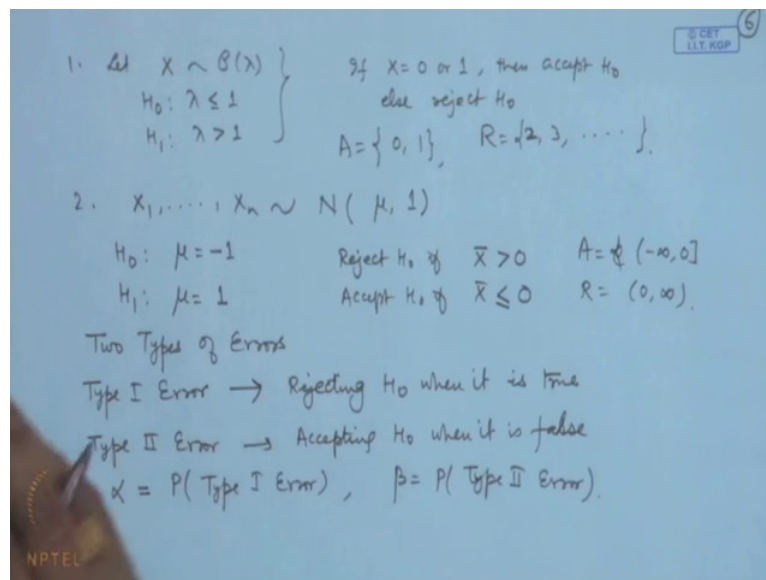 6
© CET
I.I.T. KGP
1. Let X ~ P(λ)
H₀: λ ≤ 1
H₁: λ > 1
If X = 0 or 1, then accept H₀
else reject H₀
A = {0, 1}, R = {2, 3, ....}.
2. X₁, ....., Xₙ ~ N(μ, 1)
H₀: μ = -1 Reject H₀ if X̄ > 0 A = (-∞, 0]
H₁: μ = 1 Accept H₀ if X̄ ≤ 0 R = (0, ∞).
Two Types of Errors
Type I Error → Rejecting H₀ when it is true
Type II Error → Accepting H₀ when it is false
α = P(Type I Error), β = P(Type II Error).
NPTEL